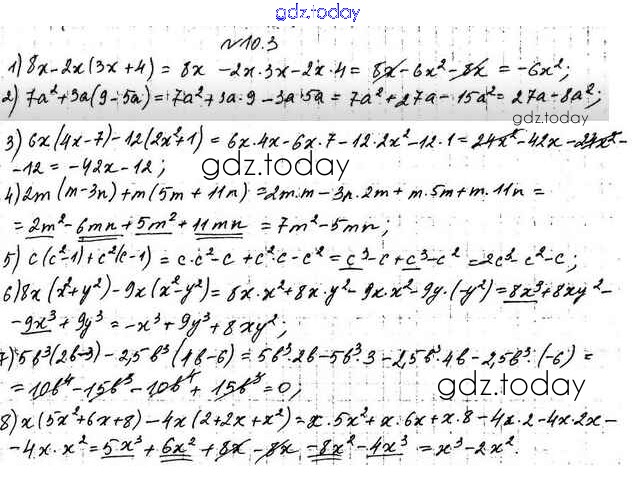 gdz.today
№10.3
1) 8x-2x(3x+4) = 8x -2x·3x-2x·4 = 8x-6x²-8x = -6x²;
2) 7a²+3a(9-5a)=7a²+3a·9-3a·5a=7a²+27a-15a²=27a-8a²;
3) 6x(4x-7)-12(2x²+1) = 6x·4x-6x·7-12·2x²-12·1=24x²-42x-24x²-
-12 = -42x-12;
gdz.today
4) 2m(m-3n)+m(5m+11n) =2m·m-3n·2m+m·5m+m·11n =
= 2m²-6mn+5m²+11mn = 7m²-5mn;
5) c(c²-1)+c²(c-1) = c·c²-c+c²·c-c² = c³-c+c³-c² =2c³-c²-c;
6) 8x(x²+y²)-9x(x²-y²)= 8x·x²+8x·y²-9x·x²-9y·(-y²)=8x³+8xy²-
-9x³+9y³=-x³+9y³+8xy²;
7) 5b³(2b-3)-2,5b³(4b-6) = 5b³·2b-5b³·3-2,5b³·4b-2,5b³·(-6) =
= 10b⁴-15b³-10b⁴+15b³=0;
gdz.today
8) x(5x²+6x+8)-4x(2+2x+x²)=x·5x²+x·6x+x·8-4x·2-4x·2x-
-4x·x²=5x³+6x²+8x-8x-8x²-4x³ = x³-2x².